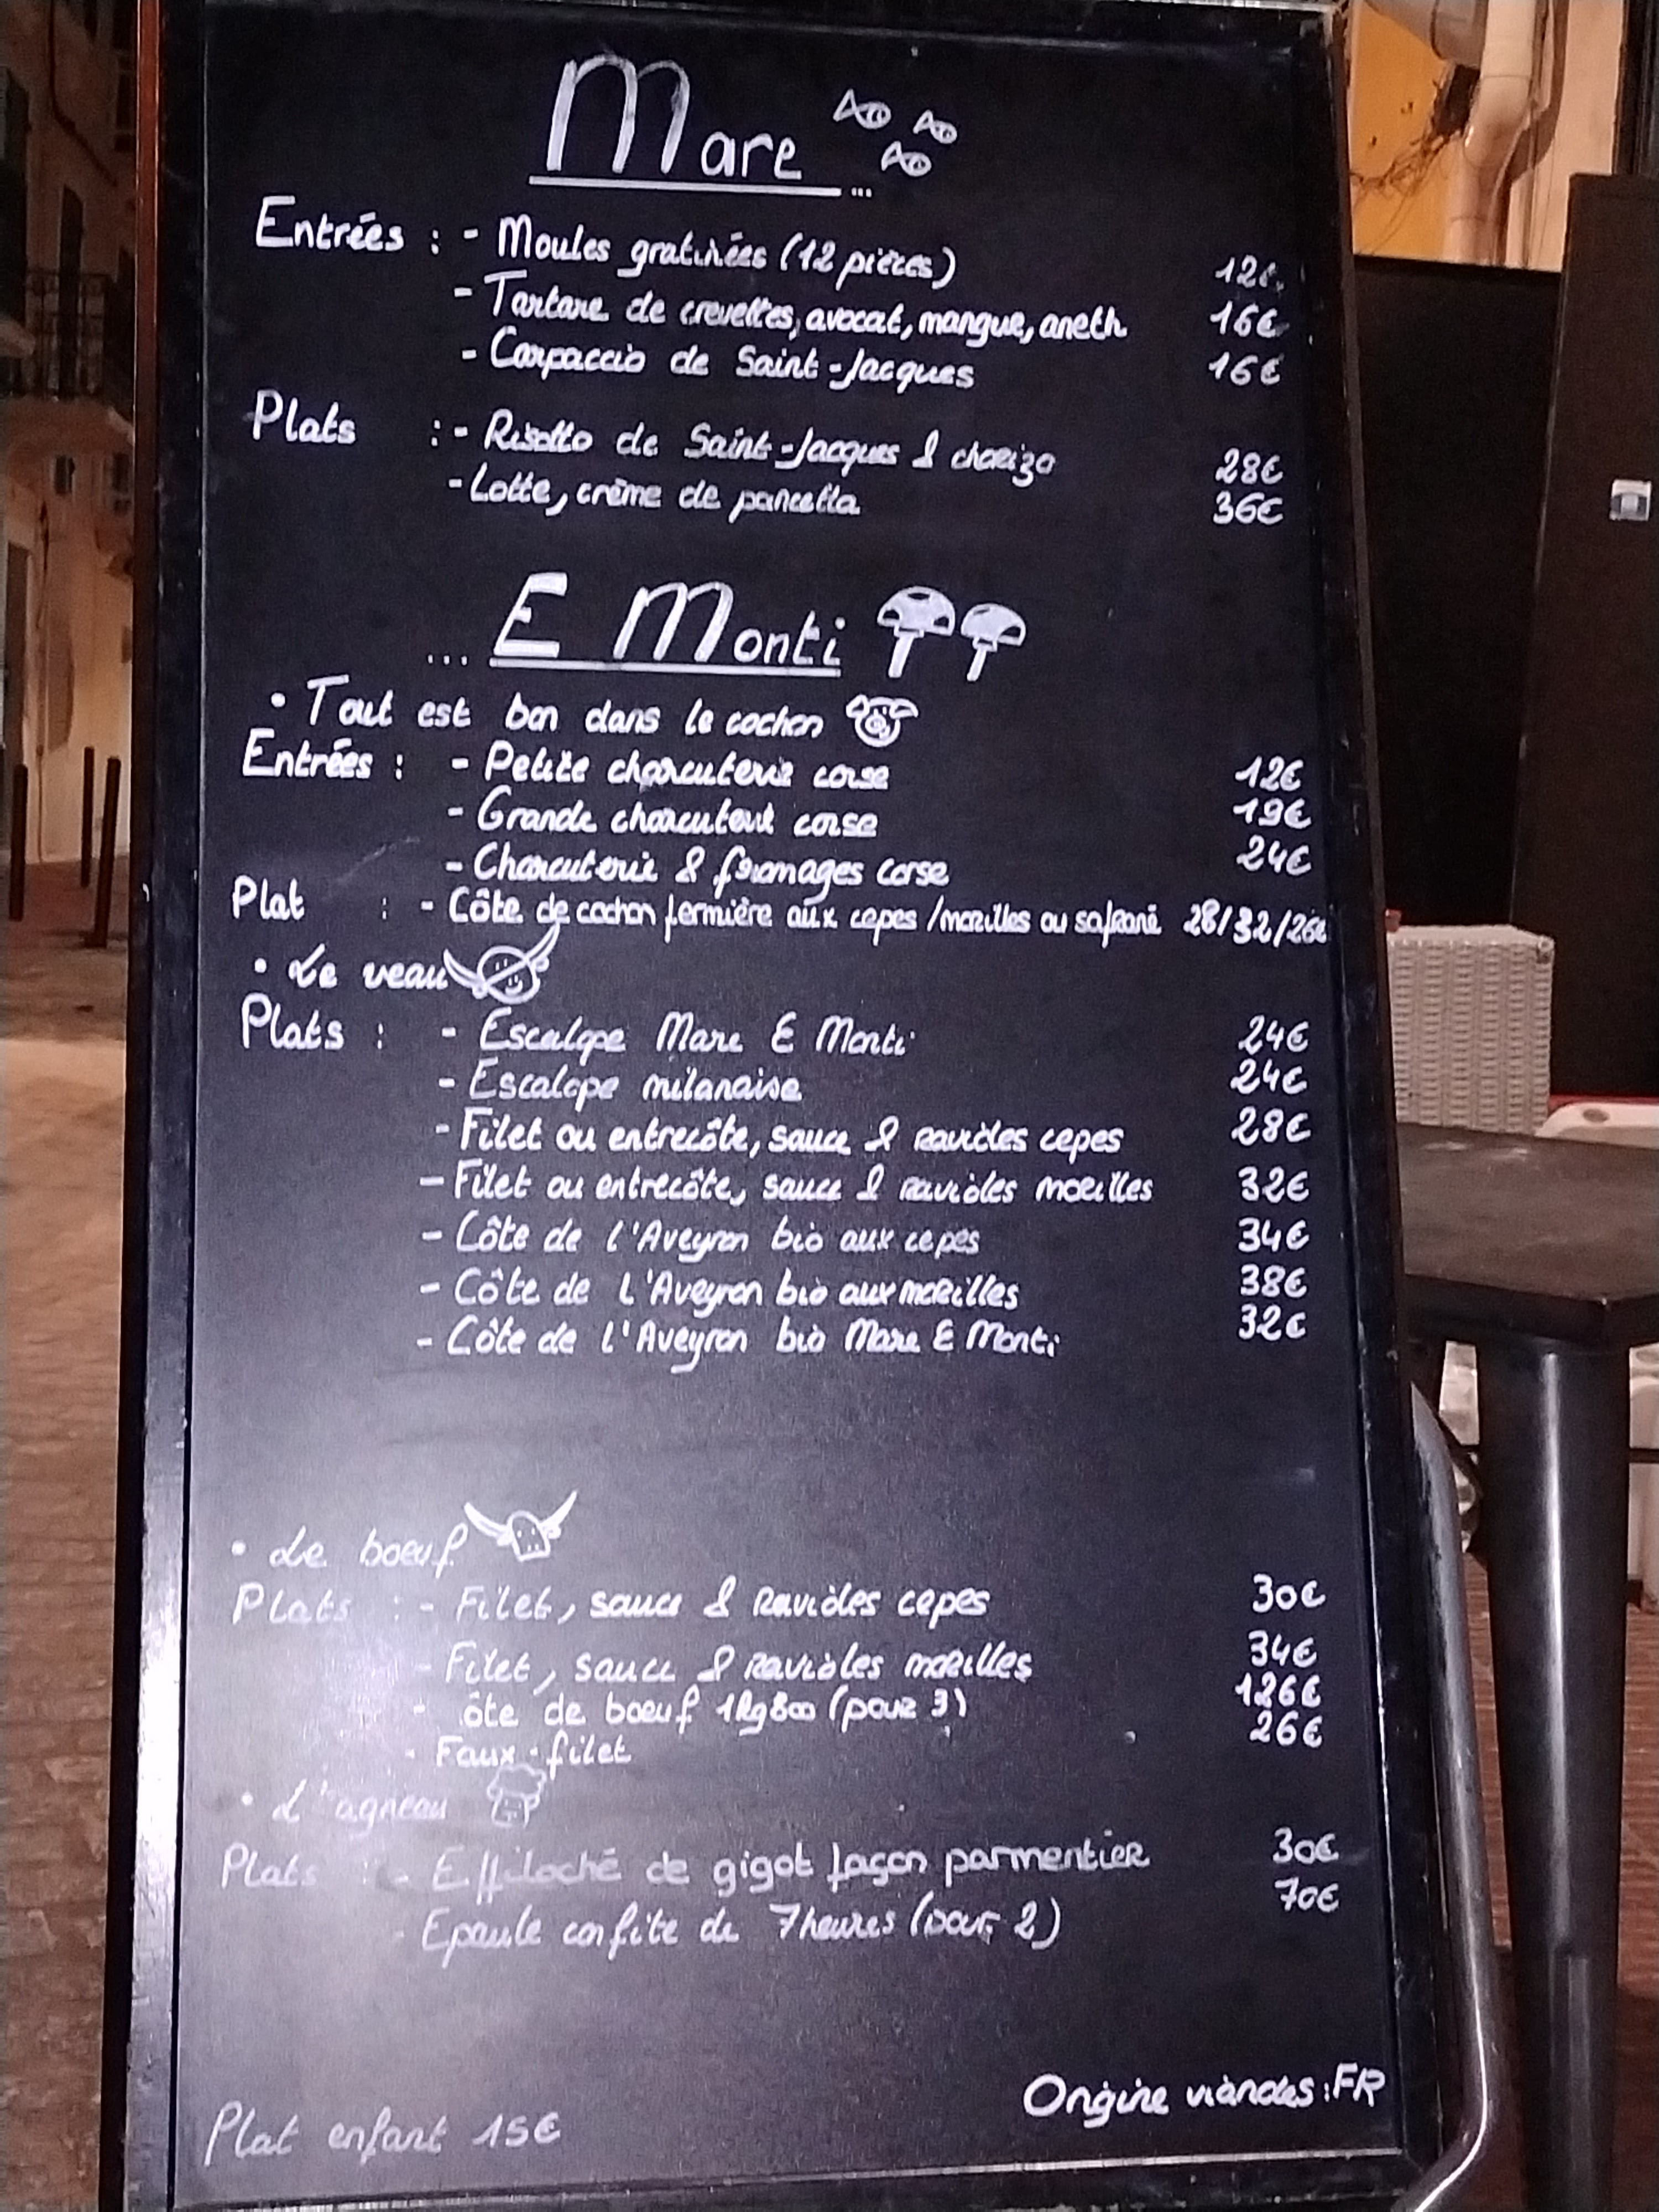 Mare ...
Entrées : - Moules gratinées (12 pièces) 12€
- Tartare de crevettes, avocat, mangue, aneth 16€
- Carpaccio de Saint-Jacques 16€
Plats : - Risotto de Saint-Jacques & chorizo 28€
- Lotte, crème de pancetta 36€
... E Monti
• Tout est bon dans le cochon
Entrées : - Petite charcuterie corse 12€
- Grande charcuterie corse 19€
- Charcuterie & fromages corse 24€
Plat : - Côte de cochon fermière aux cepes /morilles ou safrané 28/32/26€
• Le veau
Plats : - Escalope Mare E Monti 24€
- Escalope milanaise 24€
- Filet ou entrecôte, sauce & ravioles cepes 28€
- Filet ou entrecôte, sauce & ravioles morilles 32€
- Côte de l'Aveyron bio aux cepes 34€
- Côte de L'Aveyron bio aux morilles 38€
- Côte de l'Aveyron bio Mare E Monti 32€
• Le boeuf
Plats : - Filet, sauce & Ravioles cepes 30€
- Filet, sauce & ravioles morilles 34€
- ôte de boeuf 1kg800 (pour 3) 126€
- Faux-filet 26€
• L'agneau
Plats : - Effiloché de gigot façon parmentier 30€
- Epaule confite de 7heures (pour 2) 70€
Origine viandes : FR
Plat enfant 15€